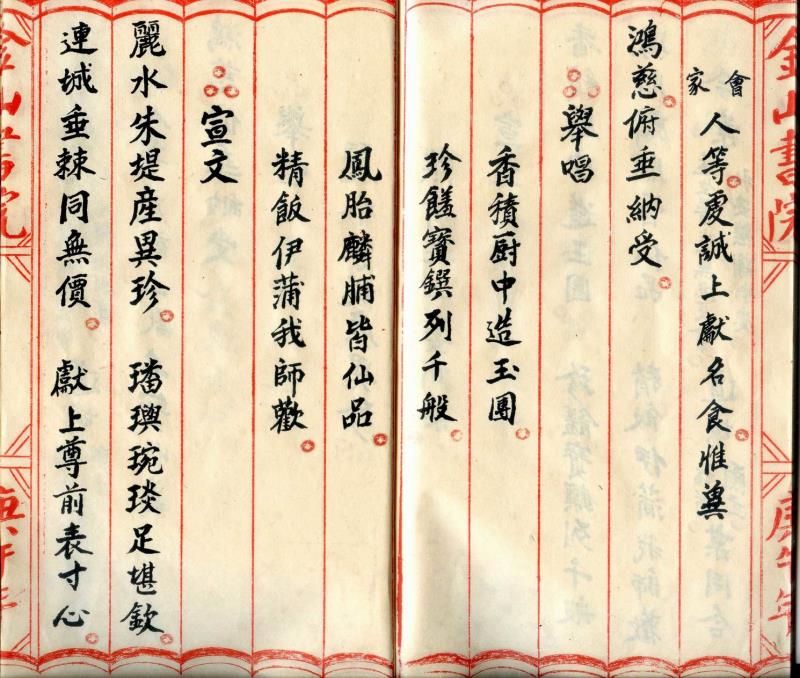 金山書院
庚午年
會家
人等虔誠上獻名食惟冀
鴻慈俯垂納受
舉唱
香積厨中造玉團
珍饈寶饌列千般
鳳胎麟脯皆仙品
精飯伊蒲我師歡
宣文
麗水朱堤産異珍 璠璵琬琰足堪欽
連城垂棘同無價 獻上尊前表寸心
金山書院
庚午年